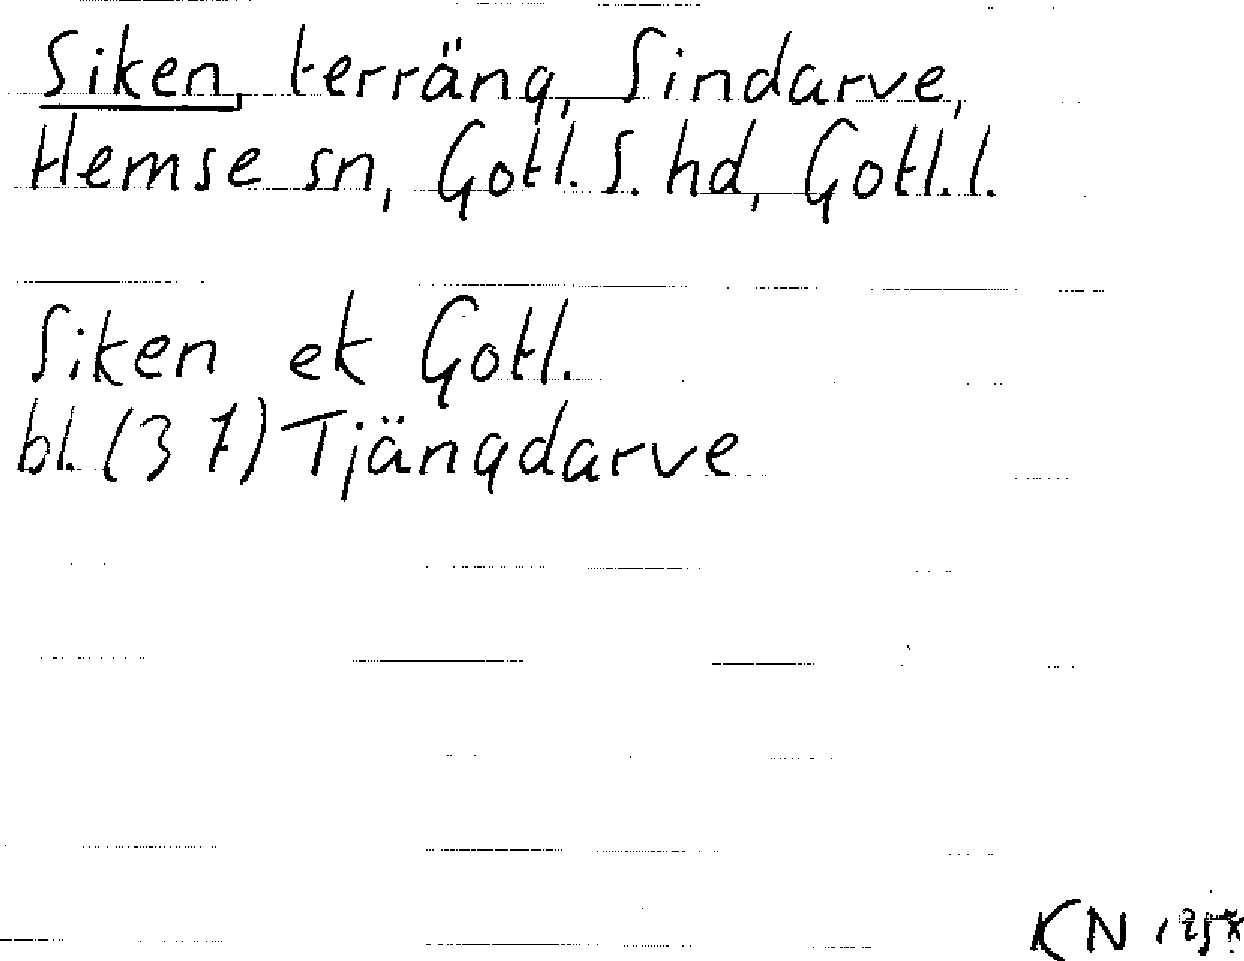 Siken, terräng, Sindarve,
Hemse sn, Gotl. S. hd, Gotl. l.
Siken ek Gotl.
bl. (37) Tjängdarve
KN